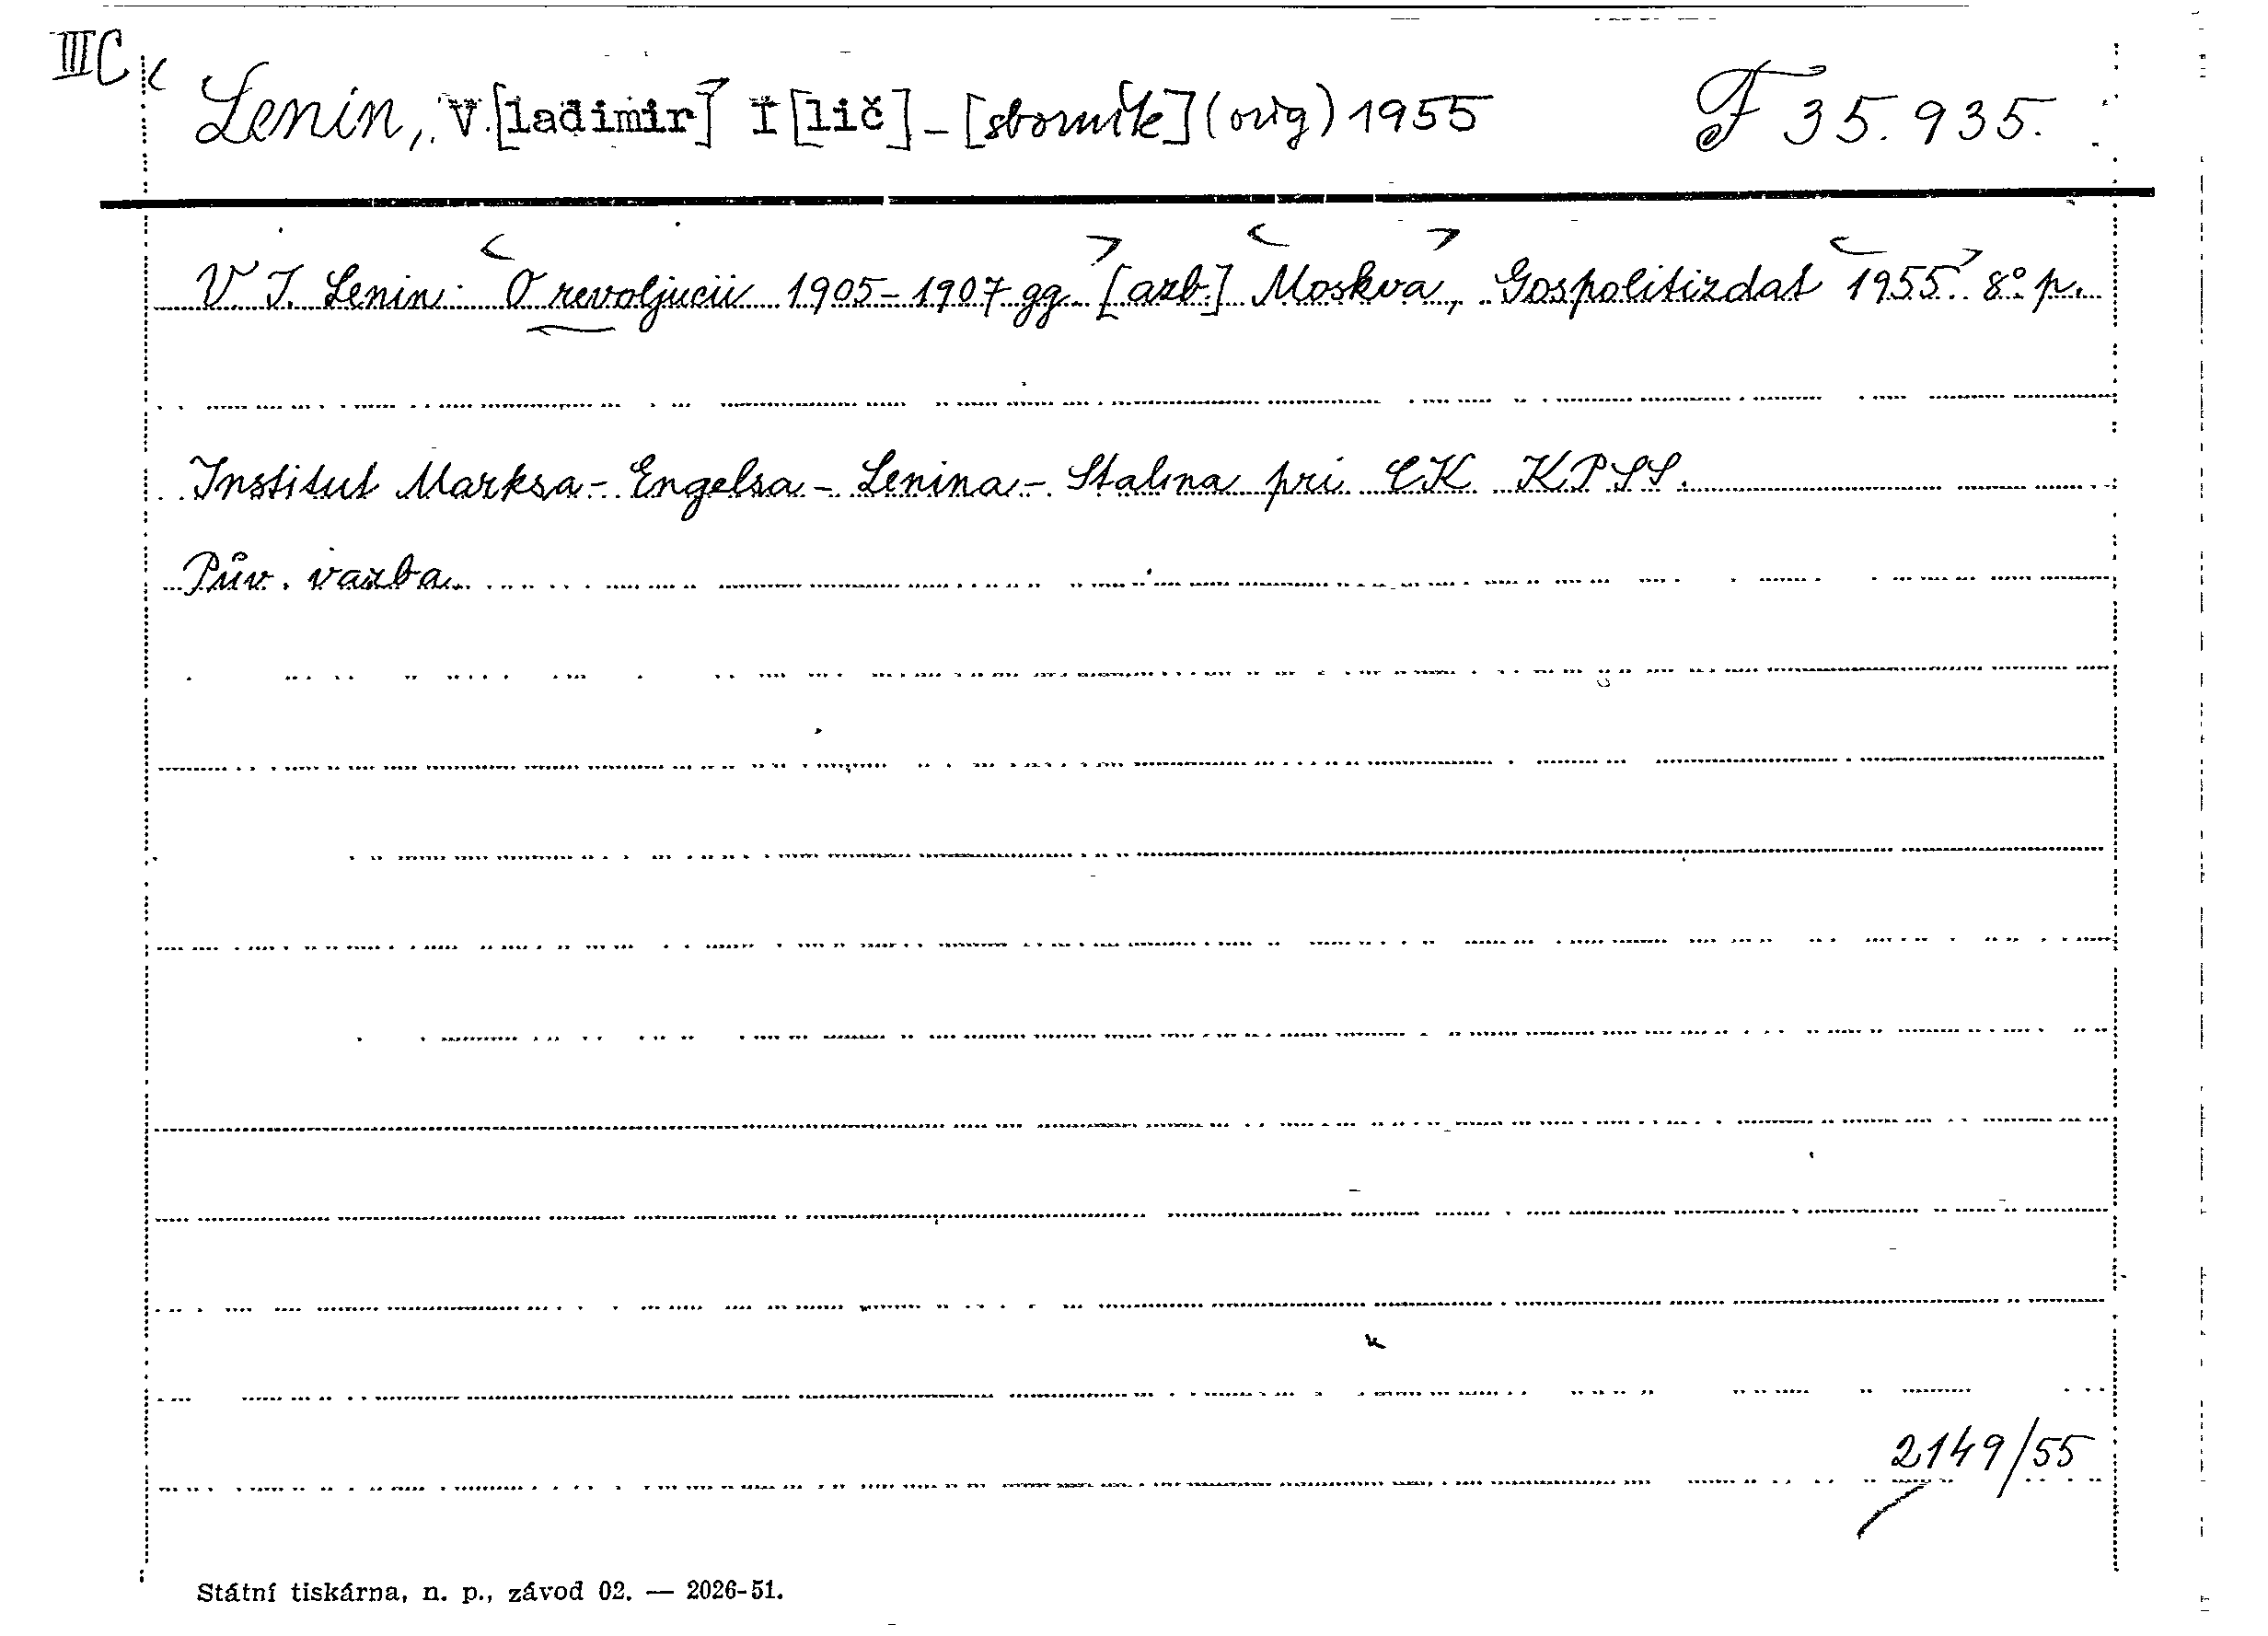 IIIC
Lenin, V.[ladimir] I[lič] - [sborník] (orig) 1955 F 35.935.
V. I. Lenin: O revoljucii 1905-1907 gg. [azb.] Moskva, Gospolitizdat 1955. 8° p.
Institut Marksa-Engelsa-Lenina-Stalina pri CK KPSS.
Pův. vazba.
2149/55
Státní tiskárna, n. p., závod 02. — 2026-51.